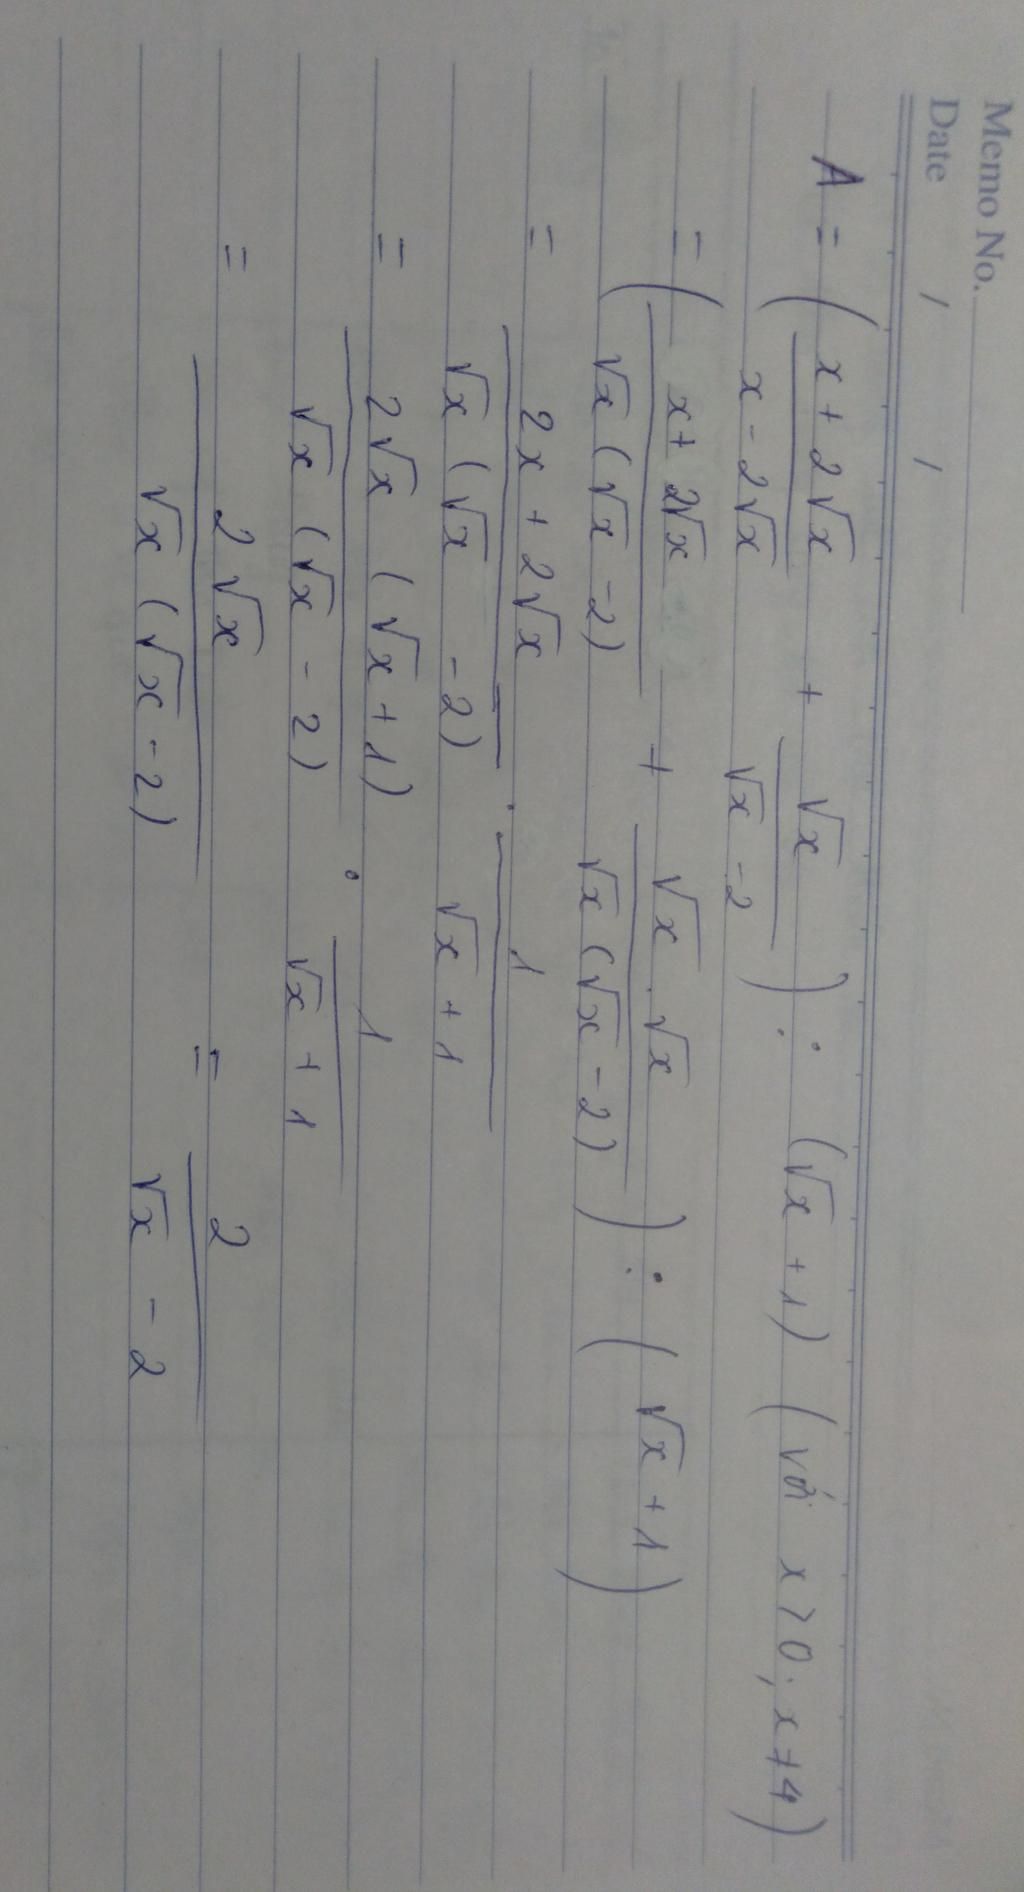 Memo No.
Date / /
A = ( (x + 2√x)/(x - 2√x) + √x/(√x - 2) ) : (√x + 1) (với x > 0; x ≠ 4)
= ( (x + 2√x)/(√x (√x - 2)) + (√x . √x)/(√x (√x - 2)) ) : ( √x + 1 )
= (2x + 2√x)/(√x (√x - 2)) . 1/(√x + 1)
= (2√x (√x + 1))/(√x (√x - 2)) . 1/(√x + 1)
= 2√x/(√x (√x - 2)) = 2/(√x - 2)